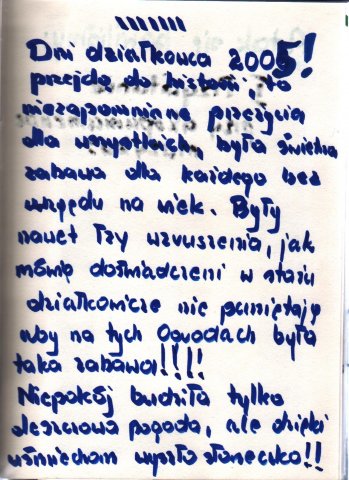 Dni działkowca 2005!
przejdą do historii, to
niezapomniane przeżycia
dla wszystkich, była świetna
zabawa dla każdego bez
względu na wiek. Były
nawet łzy wzruszenia, jak
mówią doświadczeni w stażu
działkowicze nie pamiętają
aby na tych Ogrodach była
taka zabawa!!!!
Niepokój budziła tylko
deszczowa pogoda, ale dzięki
uśmiechom wyszło słoneczko!!